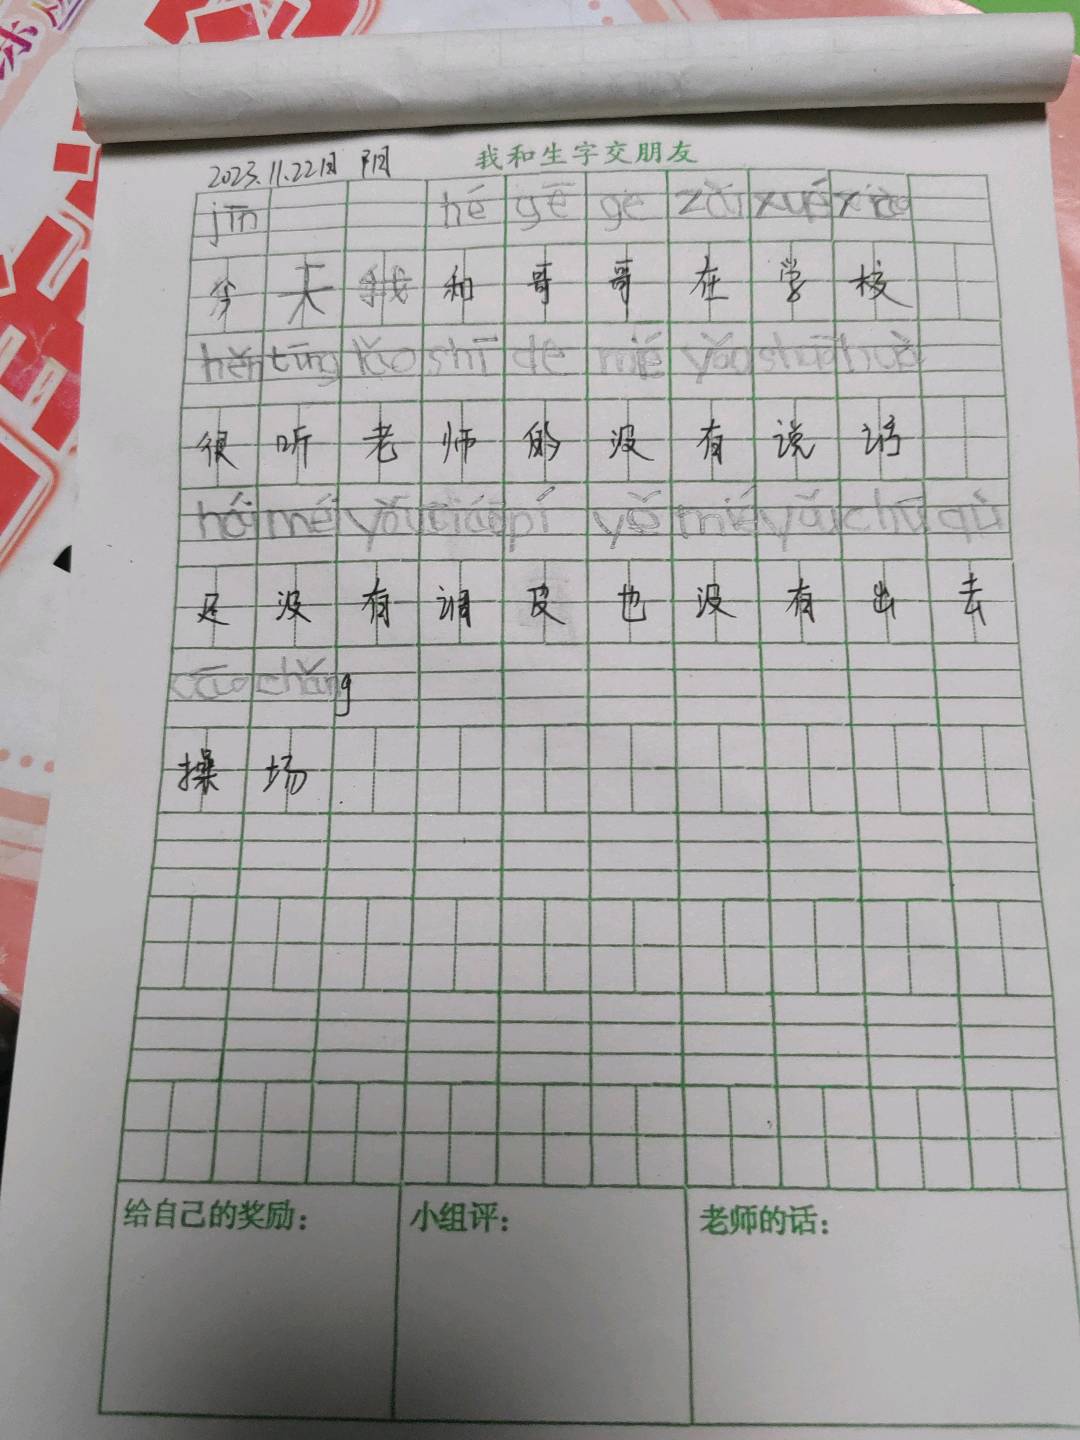 我和生字交朋友
2023.11.22日 阴
jīn hé gē ge zài xué xiào
今天我和哥哥在学校
hěn tīng lǎo shī de mié yǒu shuō huà
很听老师的没有说话
hái méi yǒu tiáo pí yě mié yǒu chū qù
还没有调皮也没有出去
cāo chǎng
操场
给自己的奖励：
小组评：
老师的话：